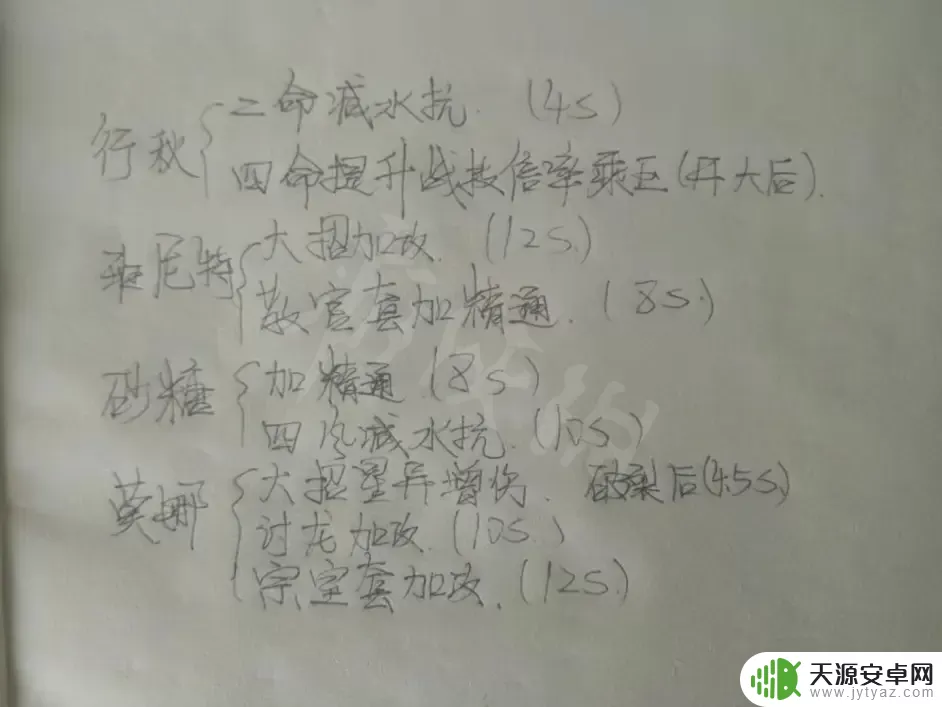 行秋
二命减水抗. (4s)
四命提升战技倍率乘区(开大后).
班尼特
大招加攻. (12s.)
教官套加精通. (8s.)
砂糖
加精通 (8s)
四风减水抗. (10s)
莫娜
大招星异增伤. 破裂后(4.5s.)
讨龙加攻. (10s.)
宗室套加攻. (12s.)
天源安卓网
www.jytyaz.com